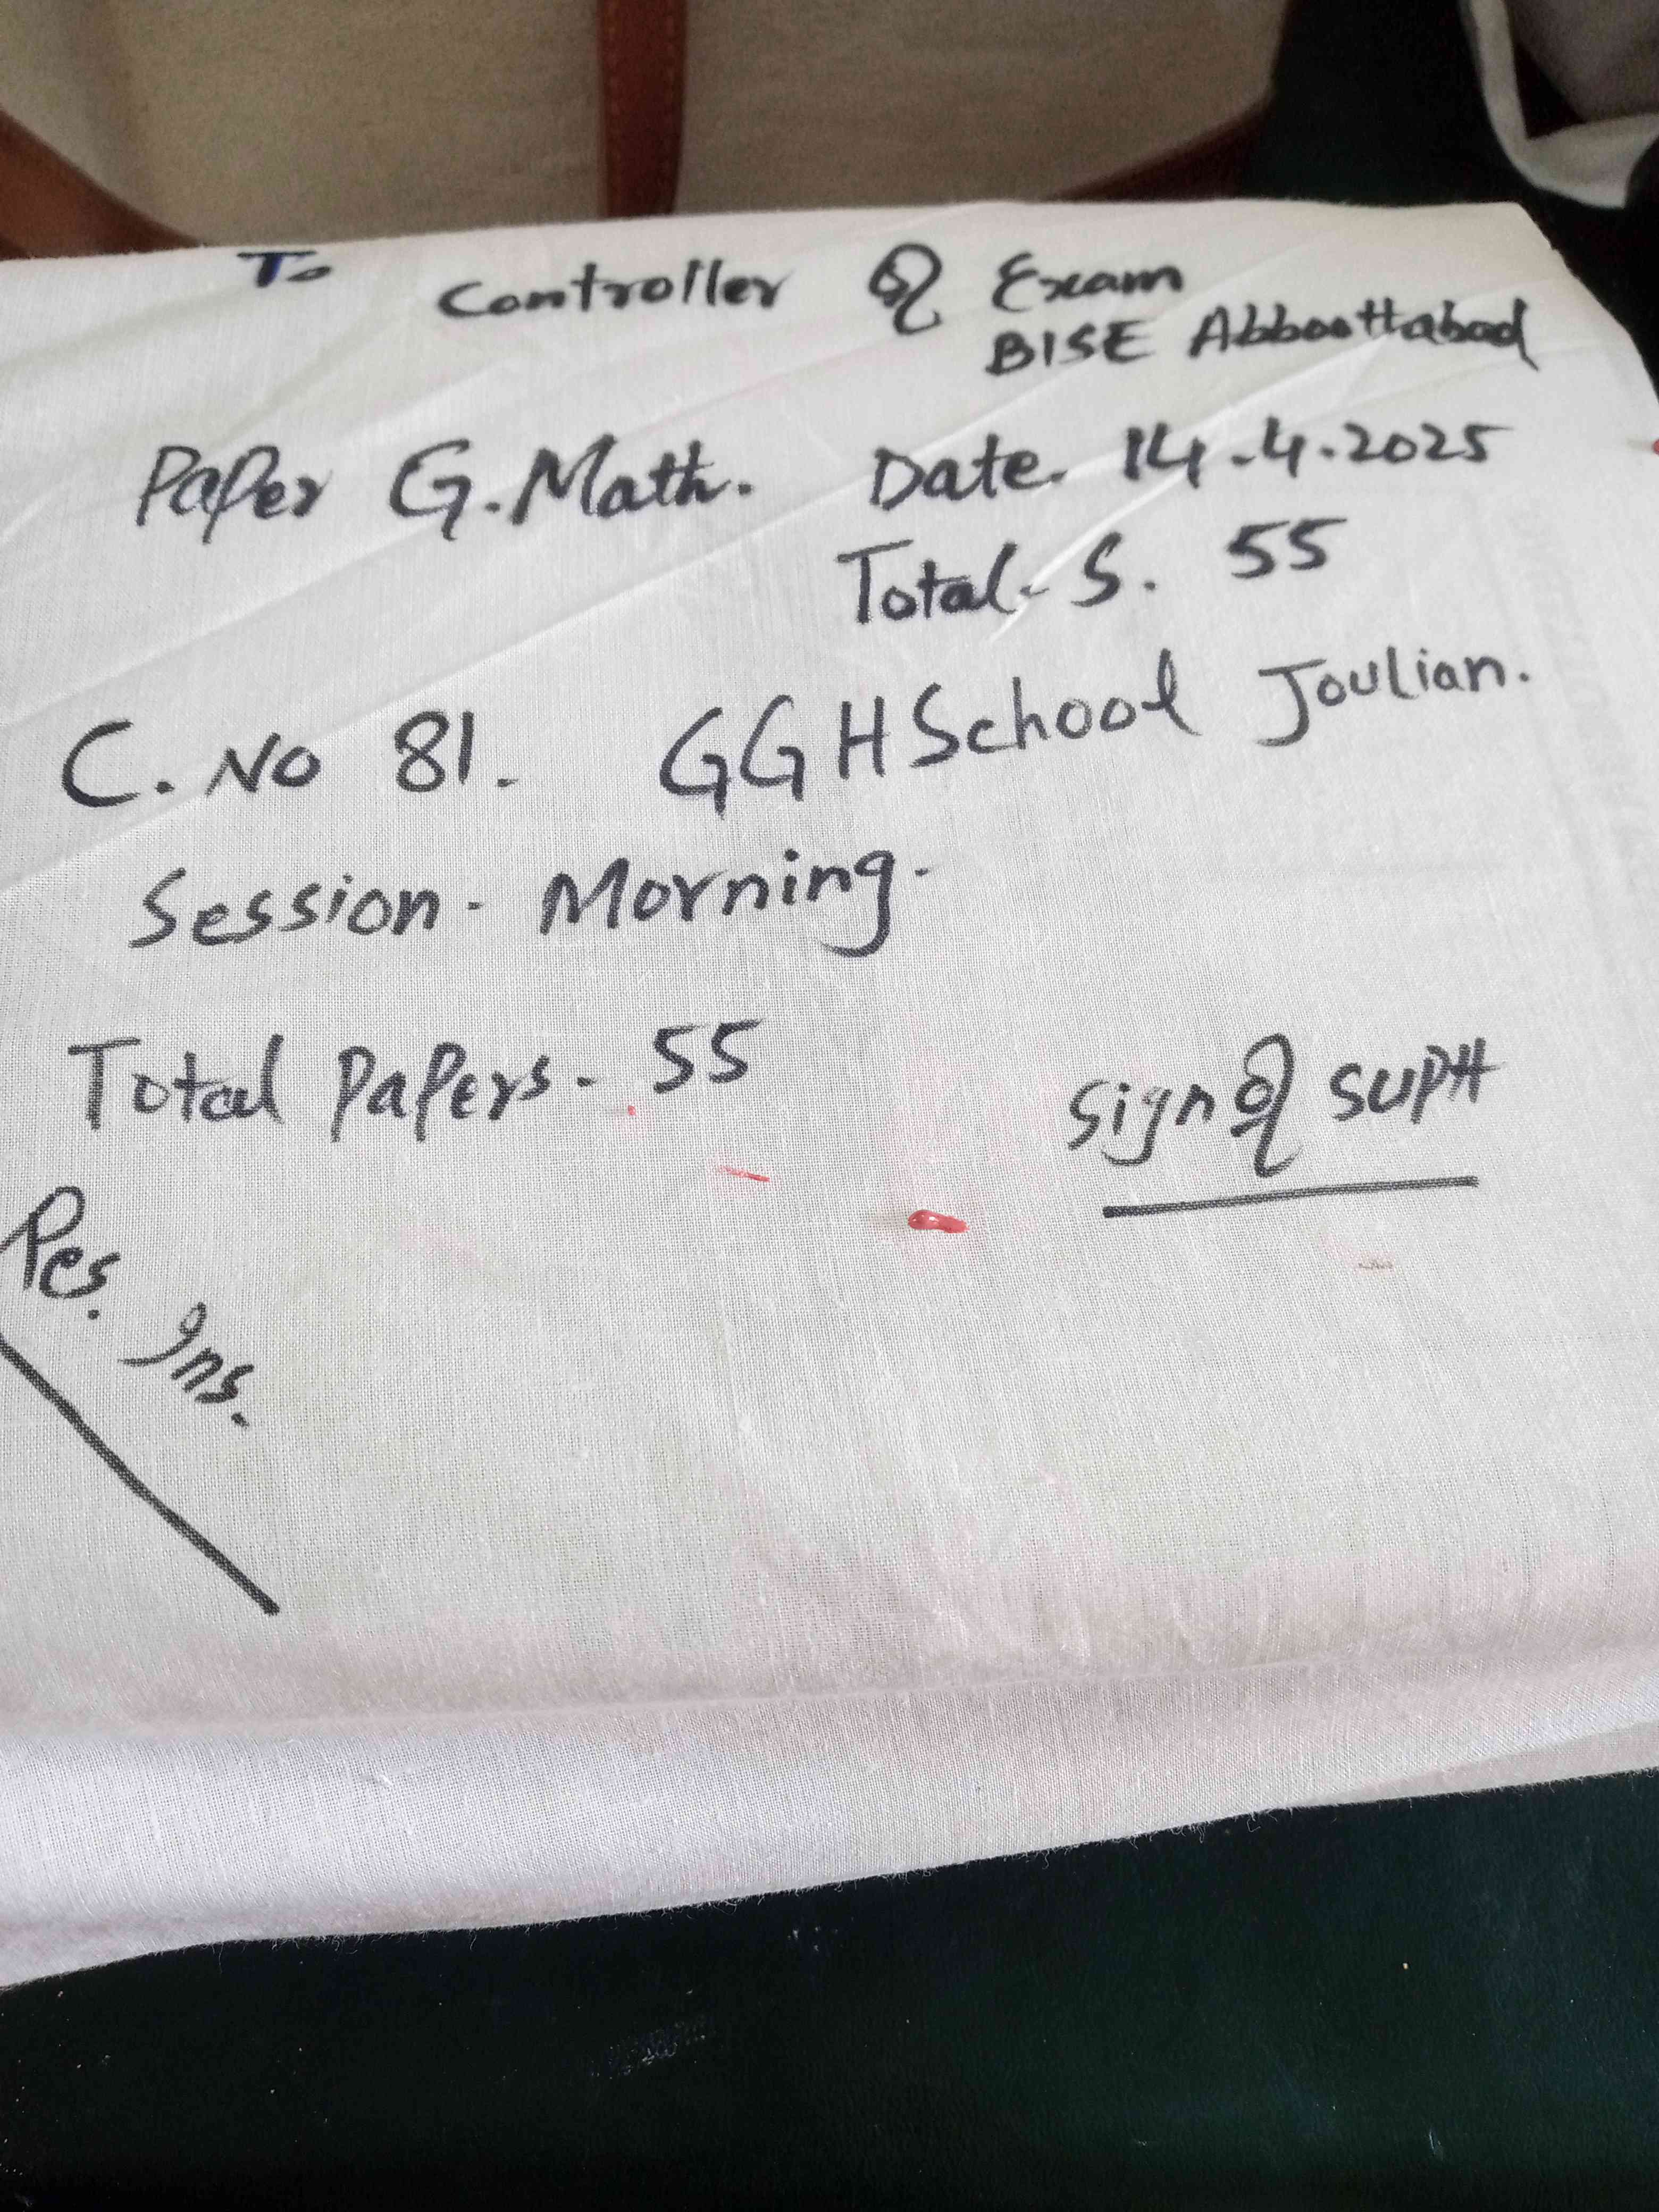 To
Controller of Exam
BISE Abboottabad
Paper G.Math. Date. 14.4.2025
Total. S. 55
C. No 81. GGHSchool Joulian.
Session. Morning.
Total Papers. 55
Sign of SUPtt
Res. Ins.